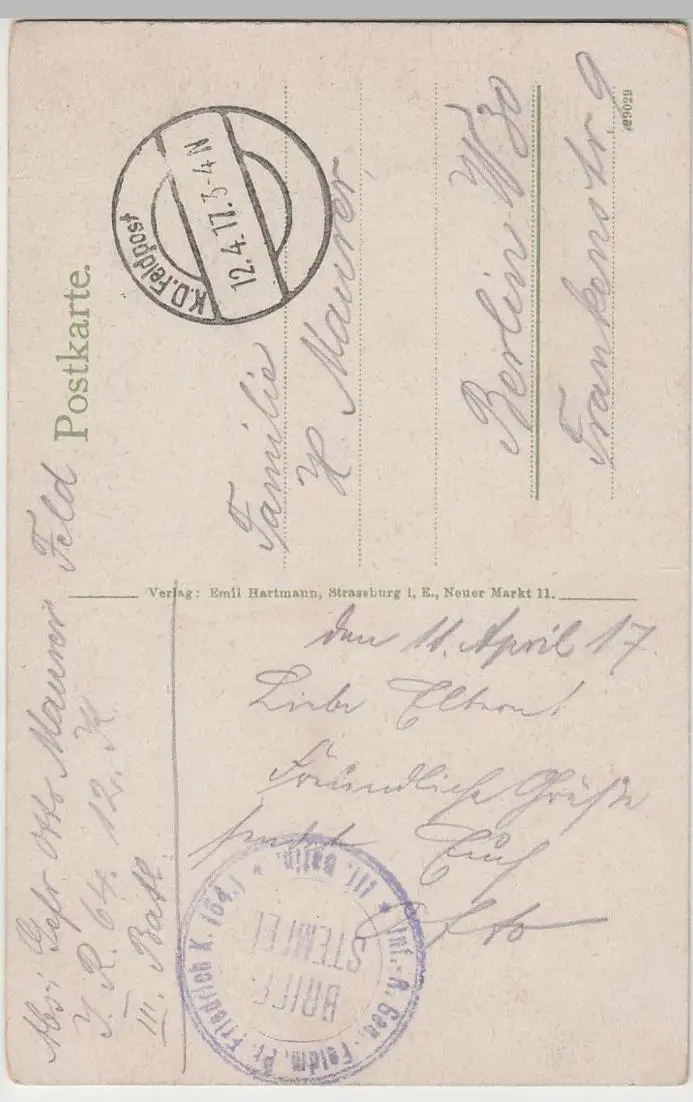 Postkarte.
Feld
K.D. Feldpost
12.4.17. 3-4 N
Familie
H. Maurer,
Berlin W 30
Frankenstr 9
29029
Verlag: Emil Hartmann, Strassburg i. E., Neuer Markt 11.
Abs: Gefr Otto Maurer
I. R. 64. 12. K
III. Batl.
den 11. April 17.
Liebe Eltern!
Freundliche Grüße
sendet Euch
Otto
Inf.-R. Gen.-Feldm. Pr. Friedrich K. (64.)
III. Batln.
BRIEF-
STEMPEL